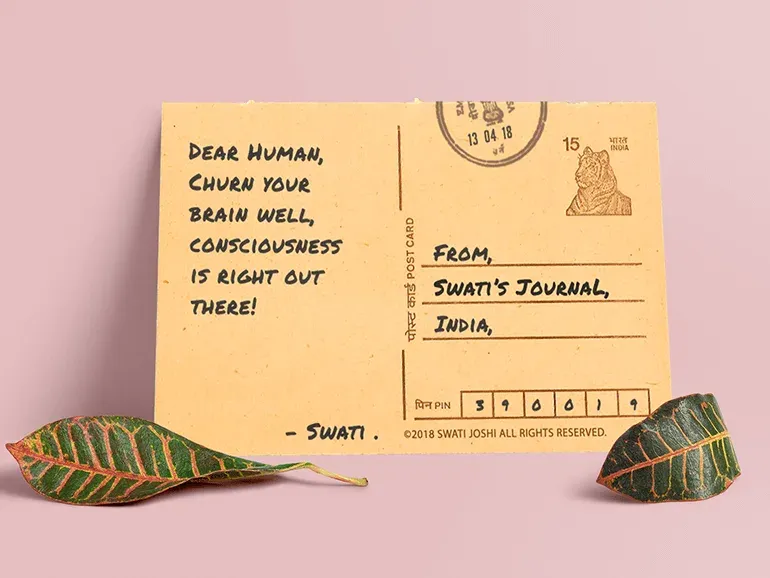 DEAR HUMAN,
CHURN YOUR
BRAIN WELL,
CONSCIOUSNESS
IS RIGHT OUT
THERE!
- SWATI .
पोस्ट कार्ड POST CARD
13 04 18
15 भारत
INDIA
FROM,
SWATI'S JOURNAL,
INDIA,
पिन PIN 390019
©2018 SWATI JOSHI ALL RIGHTS RESERVED.